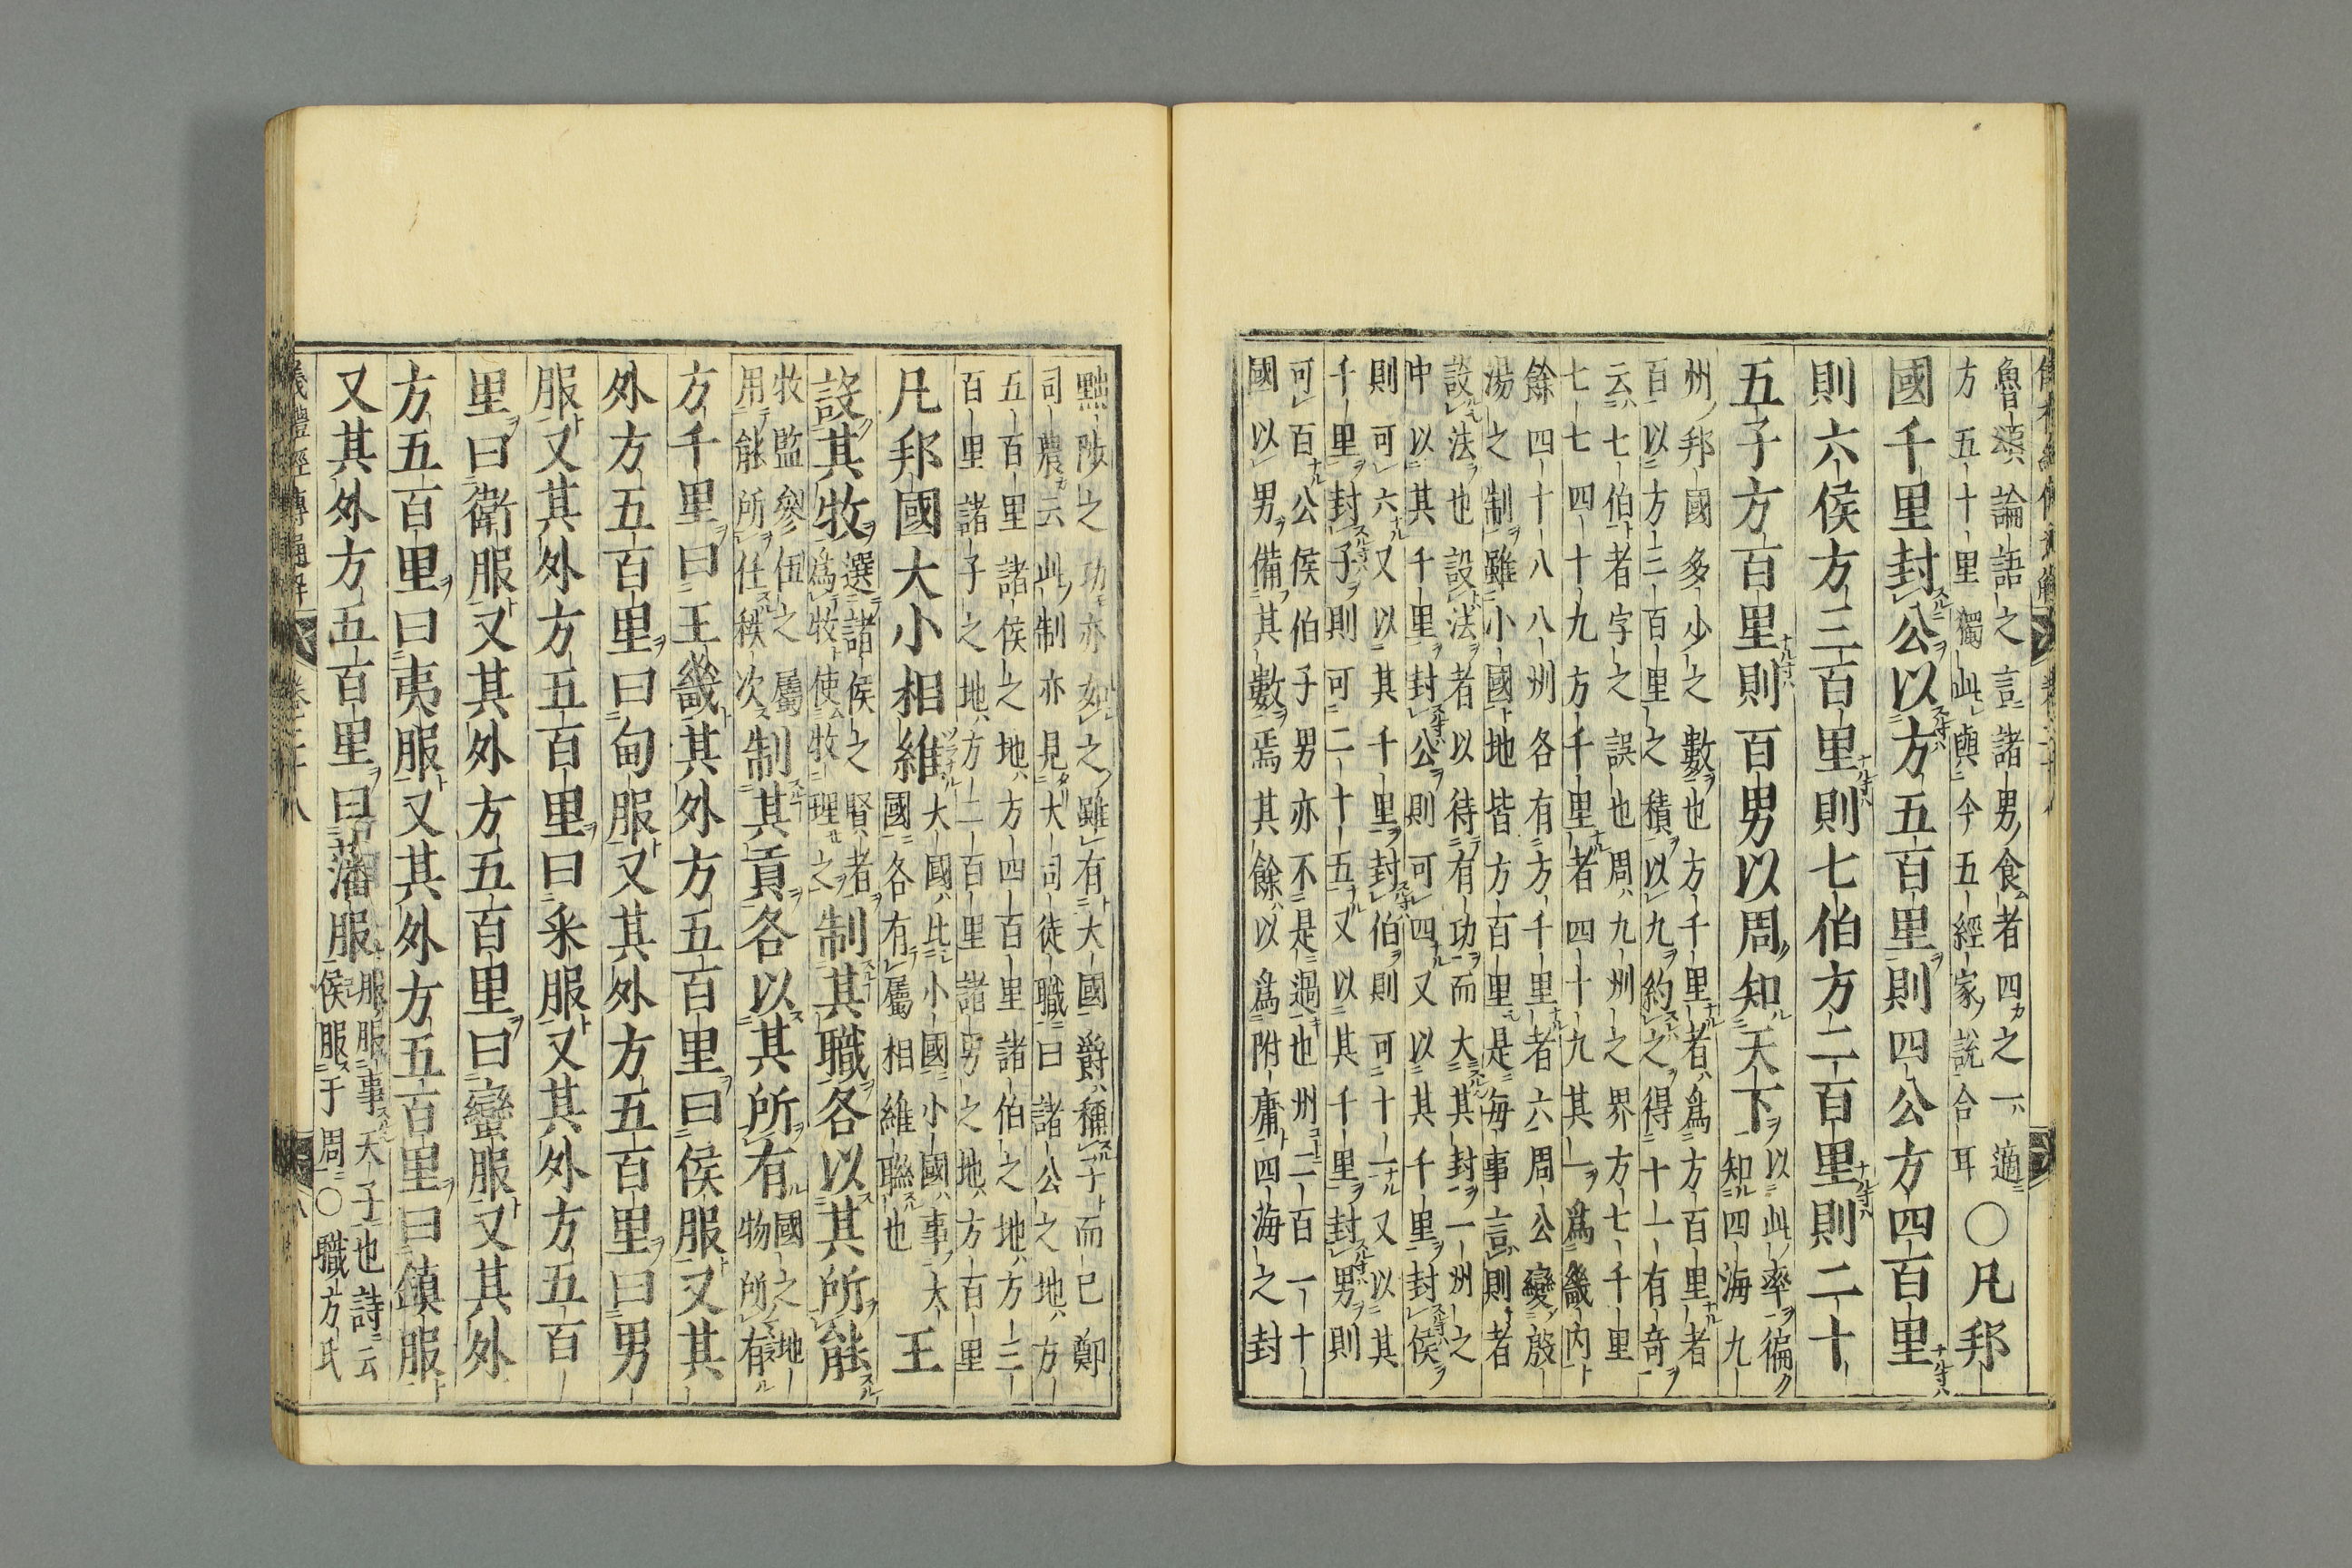 魯頌論語之言諸男食者四之一適
方五十里獨此與今五經家說合耳
○凡邦
國千里封公以方五百里則四公方四百里
則六侯方三百里則七伯方二百里則二十
五子方百里則百男以周知天下
以此率徧
知四海九
州邦國多少之數也方千里者爲方百里者
百以方三百里之積以九約之得十一有奇
云七伯者字之誤也周九州之界方七千里
七七四十九方千里者四十九其一爲畿內
餘四十八八州各有方千里者六周公變殷
湯之制雖小國地皆方百里是每事言則者
設法也設法者以待有功而大其封一州之
中以其千里封公則可四又以其千里封侯
則可六又以其千里封伯則可十一又以其
千里封子則可二十五又以其千里封男則
可百公侯伯子男亦不是過也州二百一十
國以男備其數焉其餘以爲附庸四海之封
黜陟之功亦如之雖有大國爵種子而已鄭
司農云此制亦見大司徒職曰諸公之地方
五百里諸侯之地方四百里諸伯之地方三
百里諸子之地方二百里諸男之地方百里
凡邦國大小相維
大國比小國小國事大
國各有屬相維聯也
王
設其牧
選諸侯之賢者
爲牧使牧理之
制其職各以其所能
牧監參伍之屬
用能所任秩次
制其貢各以其所有
國之地
物所有
方千里曰王畿其外方五百里曰侯服又其
外方五百里曰甸服又其外方五百里曰男
服又其外方五百里曰采服又其外方五百
里曰衛服又其外方五百里曰蠻服又其外
方五百里曰夷服又其外方五百里曰鎮服
又其外方五百里曰藩服
服服事天子也詩云
侯服于周○職方氏
儀禮經傳通解 卷三十八